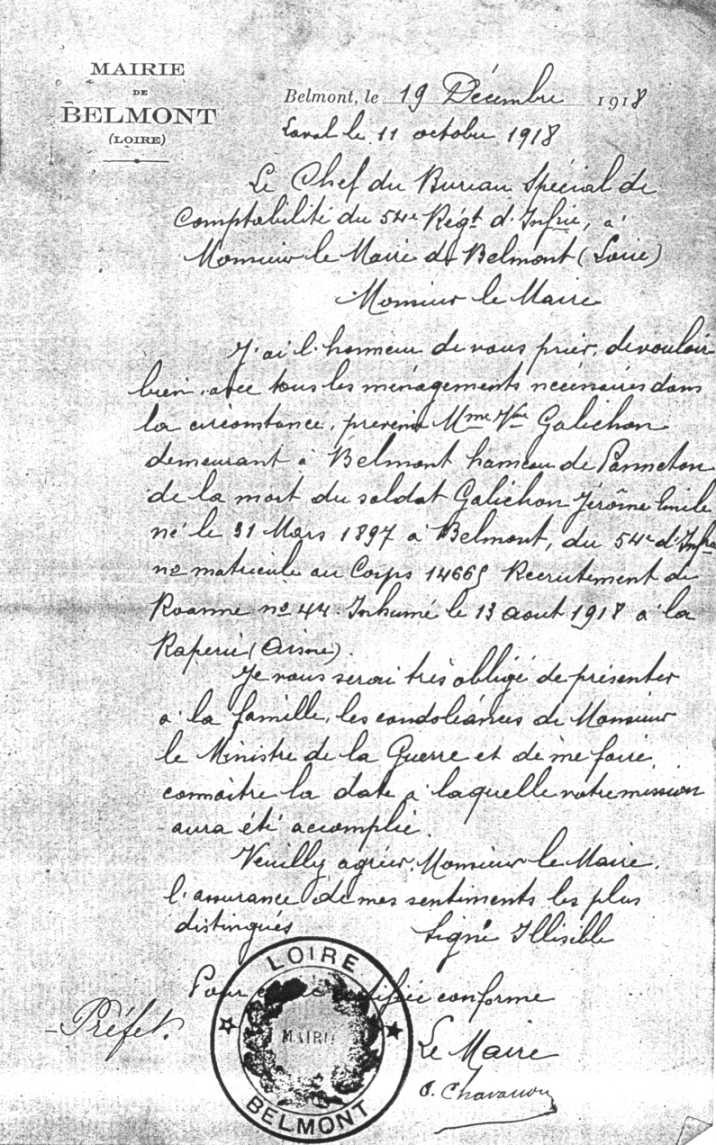 MAIRIE
DE
BELMONT
(LOIRE)
Belmont, le 19 Décembre 1918
Laval le 11 octobre 1918
Le Chef du Bureau Spécial de
Comptabilité du 54e Régt d'Infrie, à
Monsieur le Maire de Belmont (Loire)
Monsieur le Maire
J'ai l'honneur de vous prier, de vouloir
bien, avec tous les ménagements nécessaires dans
la circonstance, prévenir Mme Vve Galichon
demeurant à Belmont hameau de Panneton
de la mort du soldat Galichon Jérôme Emile
né le 31 Mars 1897 à Belmont, du 54e d'Infrie
no matricule au Corps 14665 Recrutement de
Roanne no 44. Inhumé le 13 aout 1918 à la
Raperie (Aisne).
Je vous serai très obligé de présenter
à la famille, les condoléances de Monsieur
le Ministre de la Guerre et de me faire
connaître la date à laquelle votre mission
aura été accomplie.
Veuillez agréer, Monsieur le Maire,
l'assurance de mes sentiments les plus
distingués
Signé Illisible
Pour certifiée conforme
Préfet.
Le Maire
LOIRE
MAIRIE
BELMONT